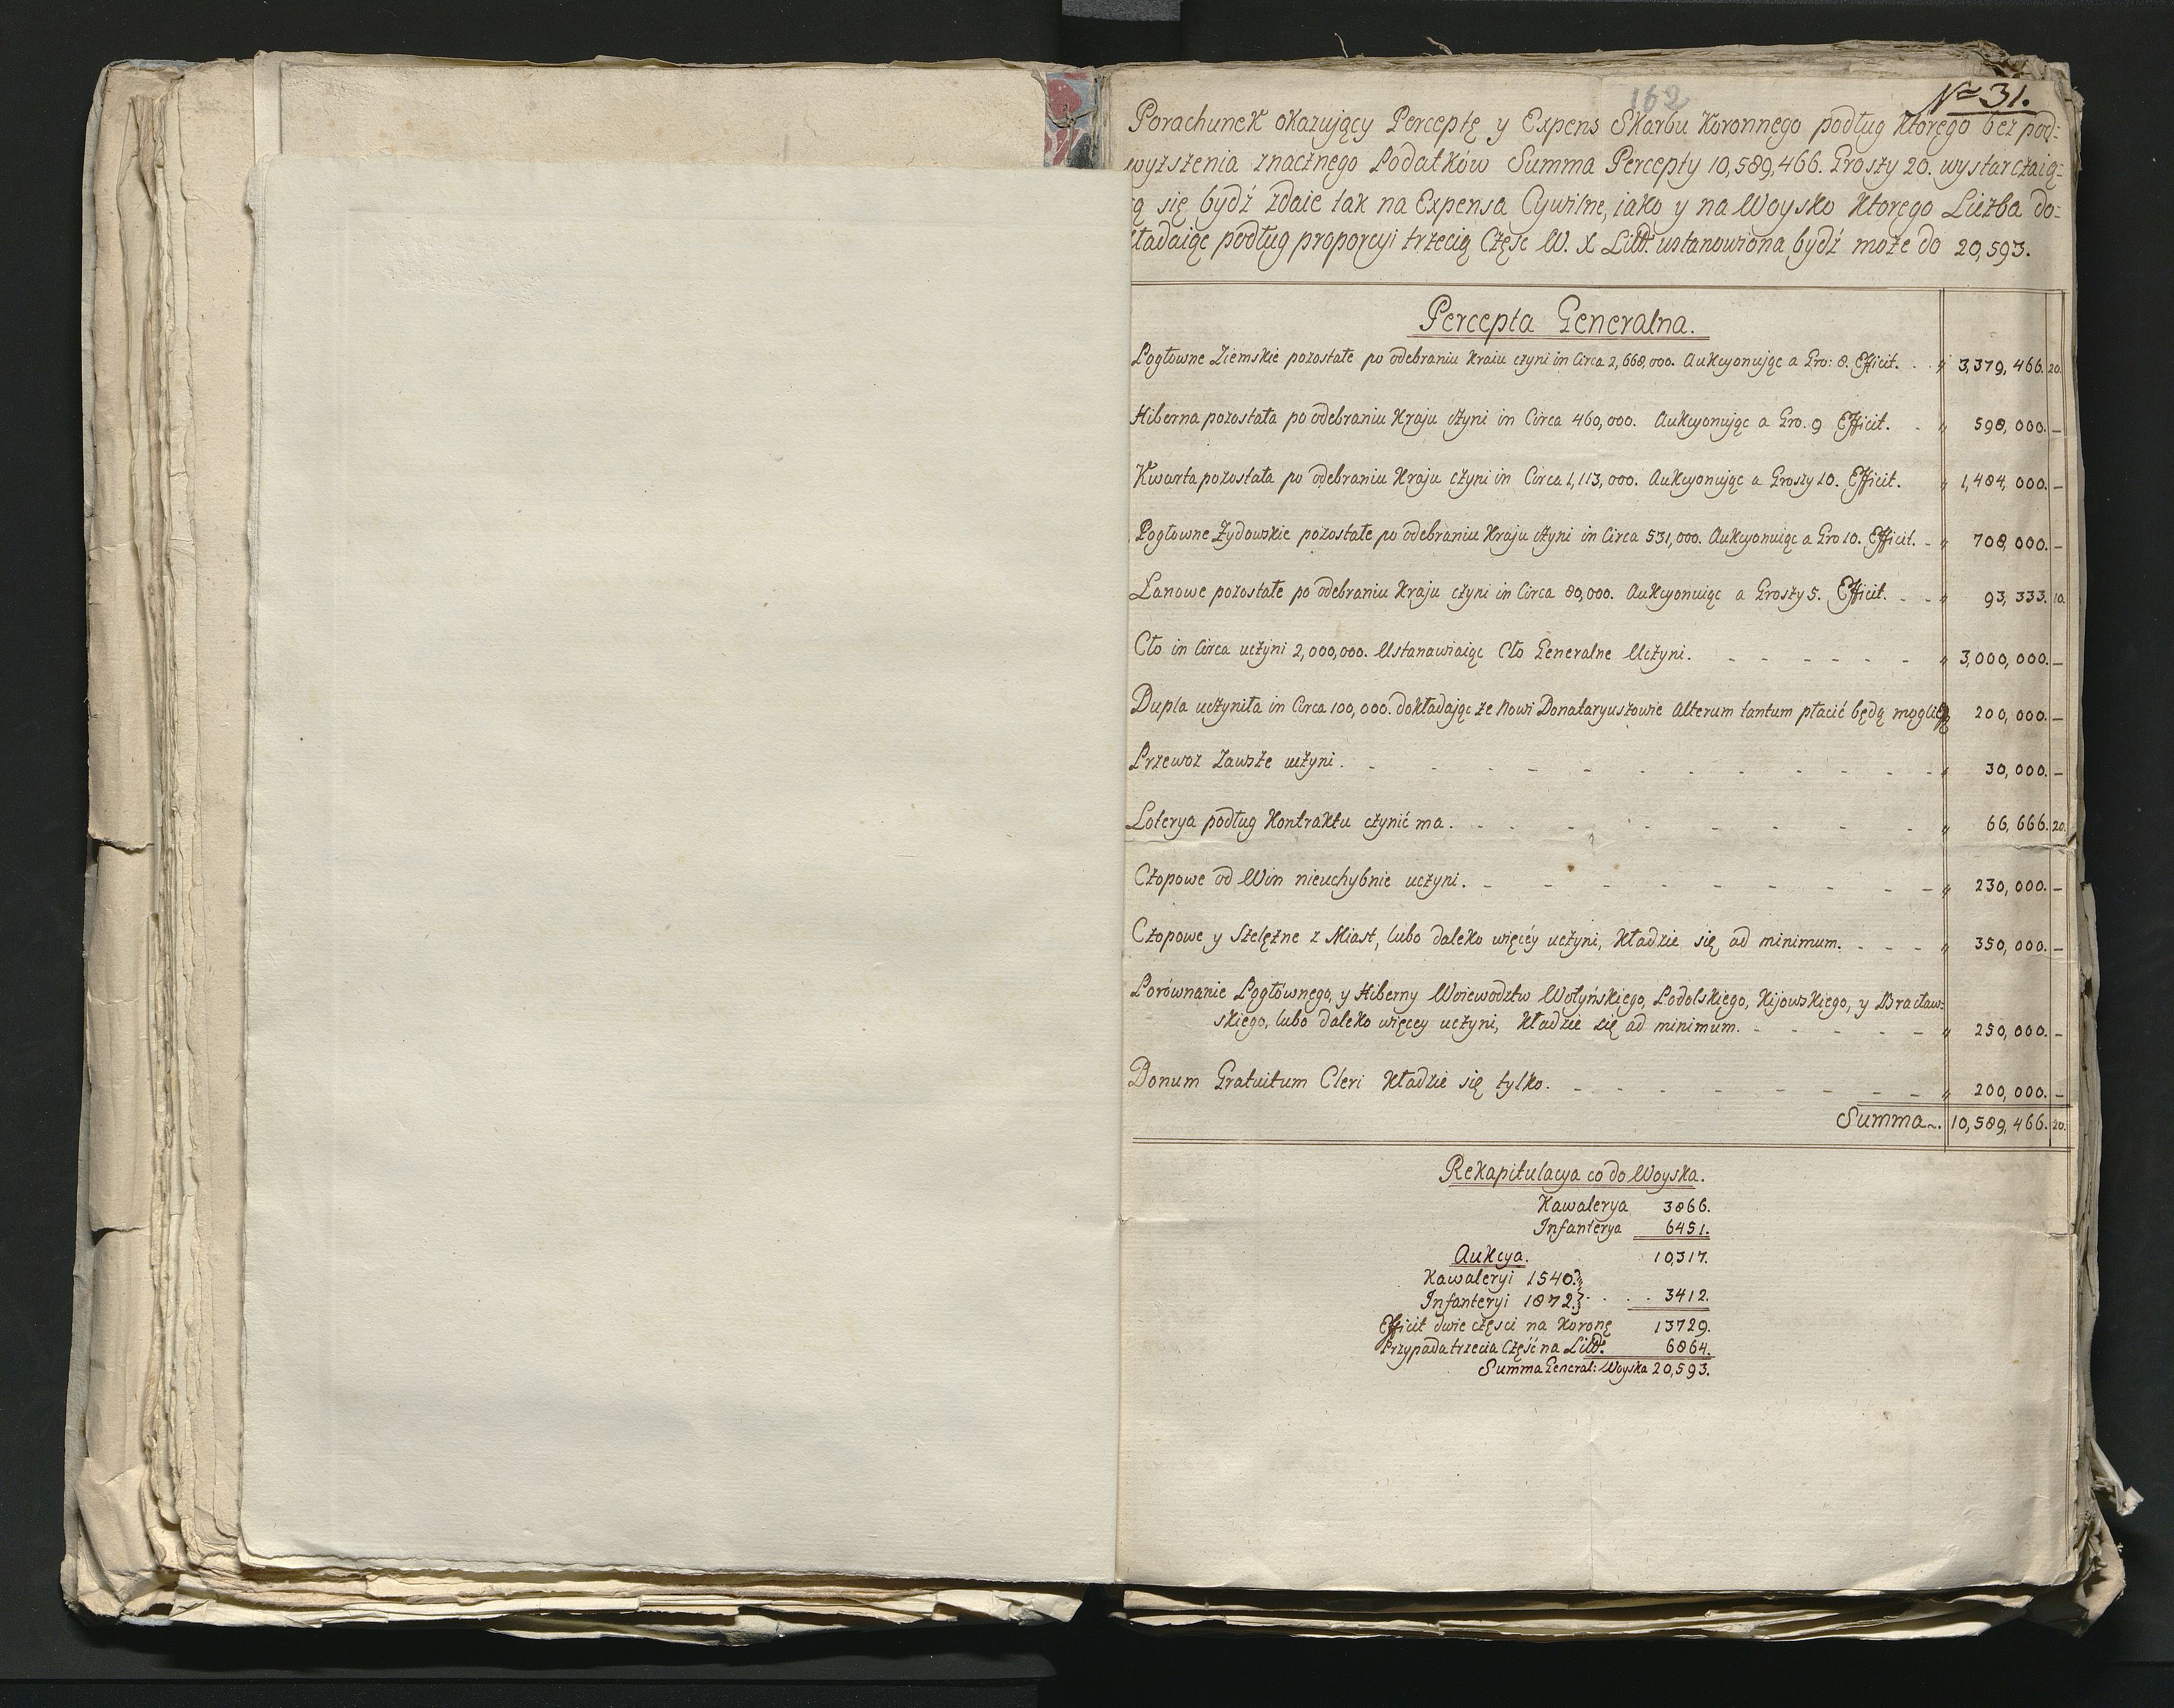 162
No 31.
Porachunek okazujący Perceptę y Expens Skarbu Koronnego podług ktorego bez pod:
wyższenia znacznego Podatków Summa Percepty 10,589,466. Groszy 20. wystarczaią:
cą się bydź zdaie tak na Expensa Cywilne, iako y na Woysko ktorego Liczba do:
kładaiąc podług proporcyi trzecią Częśc W. X Litt: ustanowiona bydź może do 20,593.
Percepta Generalna.
Pogłowne Ziemskie pozostałe po odebraniu kraiu czyni in Circa 2,668,000. Aukcyonując a Gro: 8. Efficit. . . " 3,379,466. 20.
Hiberna pozostała po odebraniu Kraju czyni in Circa 460,000. Aukcyonując a Gro. 9 Efficit. - " 598,000. -
Kwarta pozostała po odebraniu Kraju czyni in Circa 1,113,000. Aukcyonując a Groszy 10. Efficit. " 1,484,000. -
Pogłowne Żydowskie pozostałe po odebraniu Kraju czyni in Circa 531,000. Aukcyonuiąc a Gro 10. Efficit. - " 708,000. -
Łanowe pozostałe po odebraniu Kraju czyni in Circa 80,000. Aukcyonuiąc a Groszy 5. Efficit. - - " 93,333. 10.
Cło in Circa uczyni 2,000,000. Ustanawiaiąc Cło Generalne Uczyni. - - - - - - " 3,000,000. -
Dupla uczyniła in Circa 100,000. dokładając że Nowi Donataryuszowie Alterum tantum płacić będą mogli 200,000. -
Przewoz zawsze uczyni . - - - - - - - - - - " 30,000. -
Loterya podług Kontraktu czynić ma . - - - - - - - - " 66,666. 20.
Czopowe od Win nieuchybnie uczyni . - - - - - - - - - " 230,000. -
Czopowe y Szelężne z Miast, lubo daleko więcéy uczyni, kładzie się ad minimum. - - - " 350,000. -
Porównanie Pogłównego, y Hiberny Woiewodztw Wołyńskiego, Podolskiego, Kijowskiego, y Bracław:
skiego, lubo daleko więcey uczyni, kładzie się ad minimum. - - - - - " 250,000. -
Donum Gratuitum Cleri kładzie się tylko. - - - - - - - - " 200,000. -
Summa ~. 10,589,466. 20.
Rekapitulacya co do Woyska.
Kawalerya 3866.
Infanterya 6451.
Aukcya. 10317.
Kawaleryi 1540.
Infanteryi 1872. } . . . 3412.
Efficit dwie części na Koronę 13729.
Przypada trzecia Część na Litt: 6864.
Summa General: Woyska 20,593.